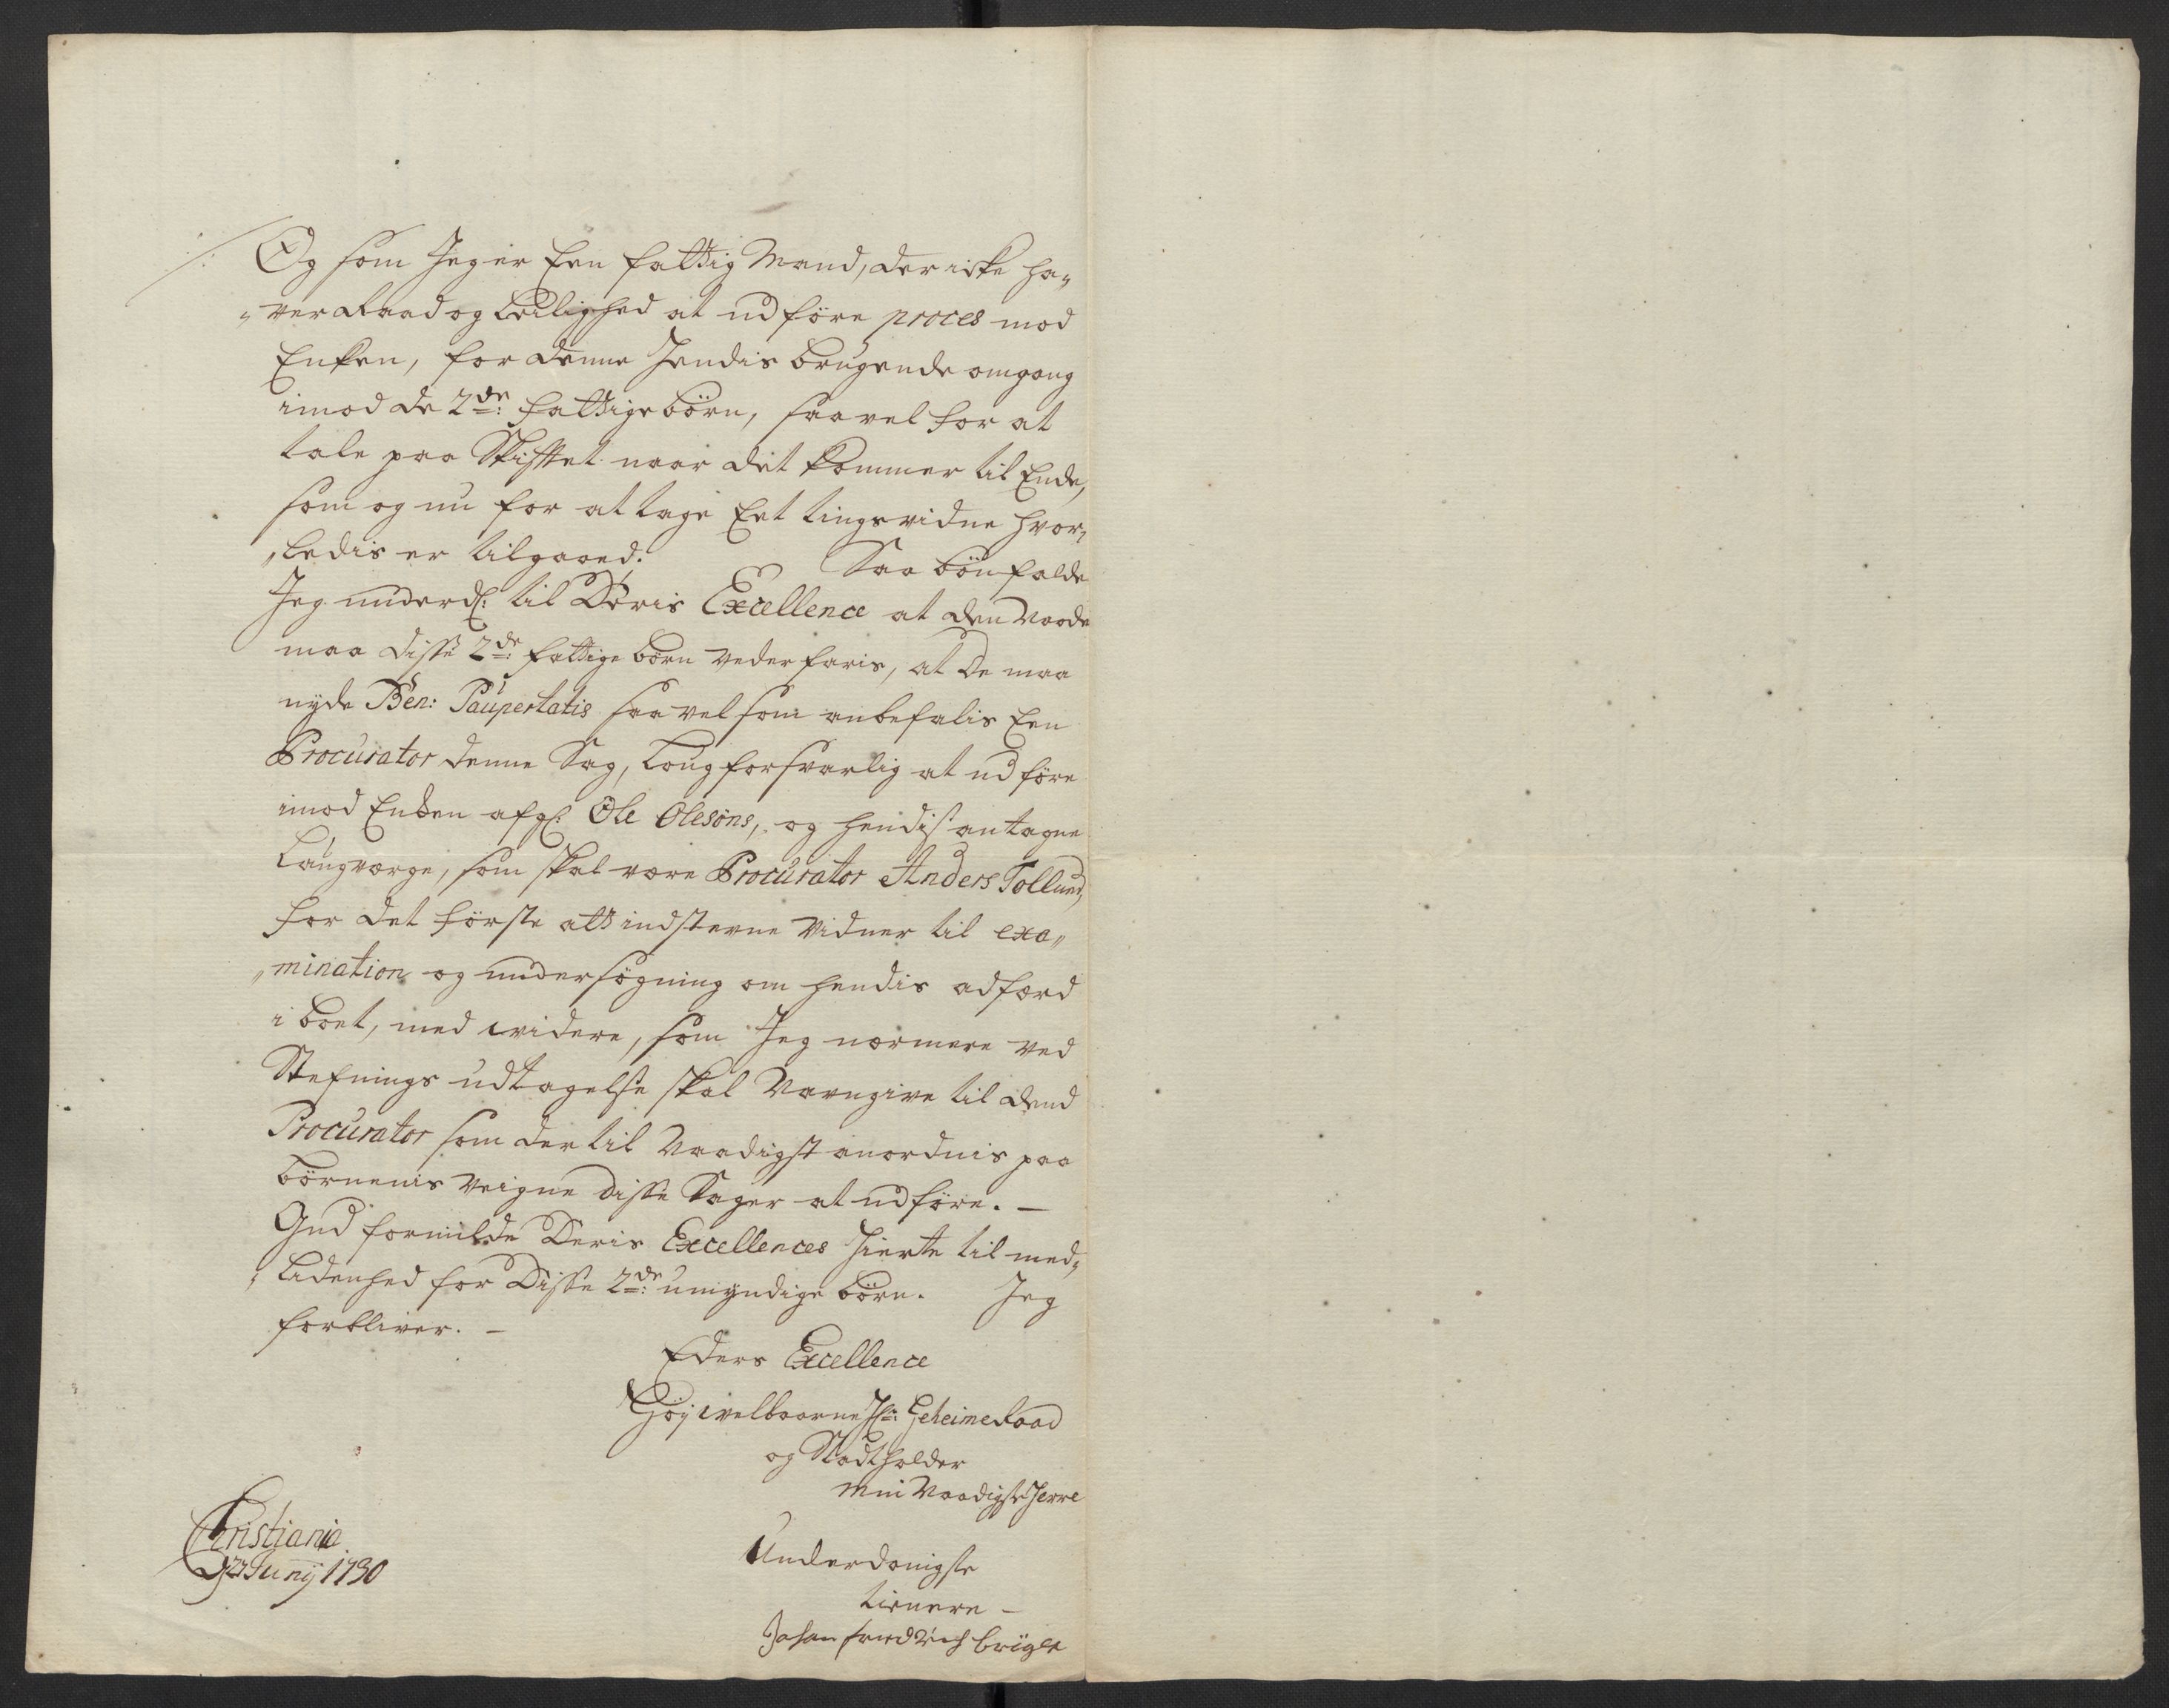 Og som Jeg er Een fattig Mand, der icke ha„
„ver Raad og Leilighed at udføre proces mod
Enken, for denne Hendis brugende omgang
imod de 2de: fattige børn, saavel for at
tale paa Skifftet naar det kommer til Ende,
som og nu for at tage Eet tingsvidne hvor„
„ledis er tilgaaed. Saa bönfalde
Jeg underd: til Deris Excellence at den Naade
maa disse 2de: fattige børn vederfaris, at de maa
nyde Ben: Paupertatis saavelsom anbefalis Een
Procurator denne Sag, Lougforsvarlig at udføre
imod Enken afg: Ole Olesöns, og hendis antagne
Laugværge, som skal være Procurator Anders Tollund,
for det første att indstevne vidner til exa„
„mination og undersøgning om hendis adfærd
i boet, med widere, som Jeg nærmere ved
Stefnings udtagelse skal Navngive til dend
Procurator som der til Naadigst anordnis paa
børnenis veigne disse Sager at udføre. —
Gud formilde Deris Excellences Hierte til med„
„lidenhed for Disse 2de: umyndige børn. Jeg
forbliver. —
Eders Excellence
Höy welbaarne Hr: Geheime Raad
og Stadtholder
Min Naadigste Herre
Underdanigste
tienere —
Johan Friedrich
Christiania
Juny 1730